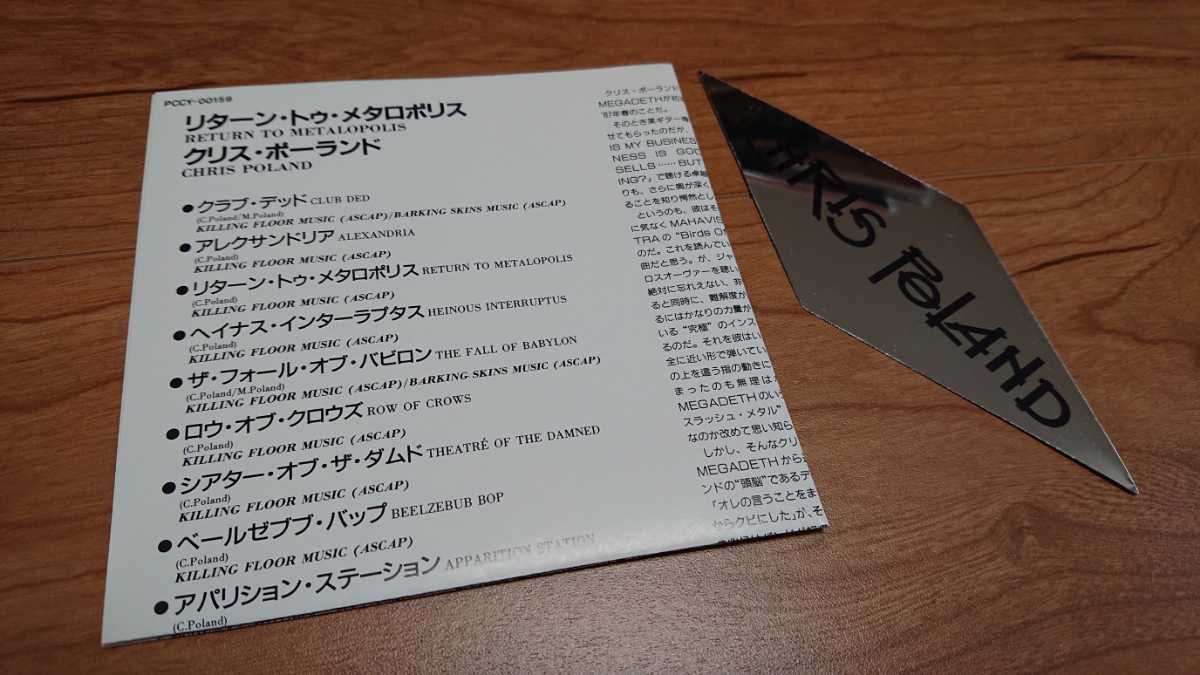 PCCY-00159
リターン・トゥ・メタロポリス
RETURN TO METALOPOLIS
クリス・ポーランド
CHRIS POLAND
●クラブ・デッド CLUB DED
(C.Poland/M.Poland)
KILLING FLOOR MUSIC (ASCAP)/BARKING SKINS MUSIC (ASCAP)
●アレクサンドリア ALEXANDRIA
(C.Poland)
KILLING FLOOR MUSIC (ASCAP)
●リターン・トゥ・メタロポリス RETURN TO METALOPOLIS
(C.Poland)
KILLING FLOOR MUSIC (ASCAP)
●ヘイナス・インターラプタス HEINOUS INTERRUPTUS
(C.Poland)
KILLING FLOOR MUSIC (ASCAP)
●ザ・フォール・オブ・バビロン THE FALL OF BABYLON
(C.Poland/M.Poland)
KILLING FLOOR MUSIC (ASCAP)/BARKING SKINS MUSIC (ASCAP)
●ロウ・オブ・クロウズ ROW OF CROWS
(C.Poland)
KILLING FLOOR MUSIC (ASCAP)
●シアター・オブ・ザ・ダムド THEATRÉ OF THE DAMNED
(C.Poland)
KILLING FLOOR MUSIC (ASCAP)
●ベールゼブブ・バップ BEELZEBUB BOP
(C.Poland)
KILLING FLOOR MUSIC (ASCAP)
●アパリション・ステーション APPARITION STATION
(C.Poland)
クリス・ポーランド
MEGADETHが初
'87年春のことだ。
そのとき某ギター専
せてもらったのだが、
IS MY BUSINES
NESS IS GOO
SELLS……BUT
ING?」で聴ける卓越
りも、さらに奥が深く
ることを知り愕然とし
というのも、彼はそ
に気なくMAHAVIS
TRAの"Birds Of
のだ。これを読んでい
曲だと思う。が、ジャ
ロスオーヴァーを聴い
絶対に忘れえない、非
ると同時に、難解度が
るにはかなりの力量か
いる"究極"のインス
るのだ。それを彼はい
全に近い形で弾いてい
の上を這う指の動きに
まったのも無理はな
MEGADETHのいう
スラッシュ・メタル"
なのか改めて思い知ら
しかし、そんなクリ
MEGADETHから
ンドの"頭脳"であるデ
「オレの言うことをま
からクビにした」が、そ
CHRIS POLAND